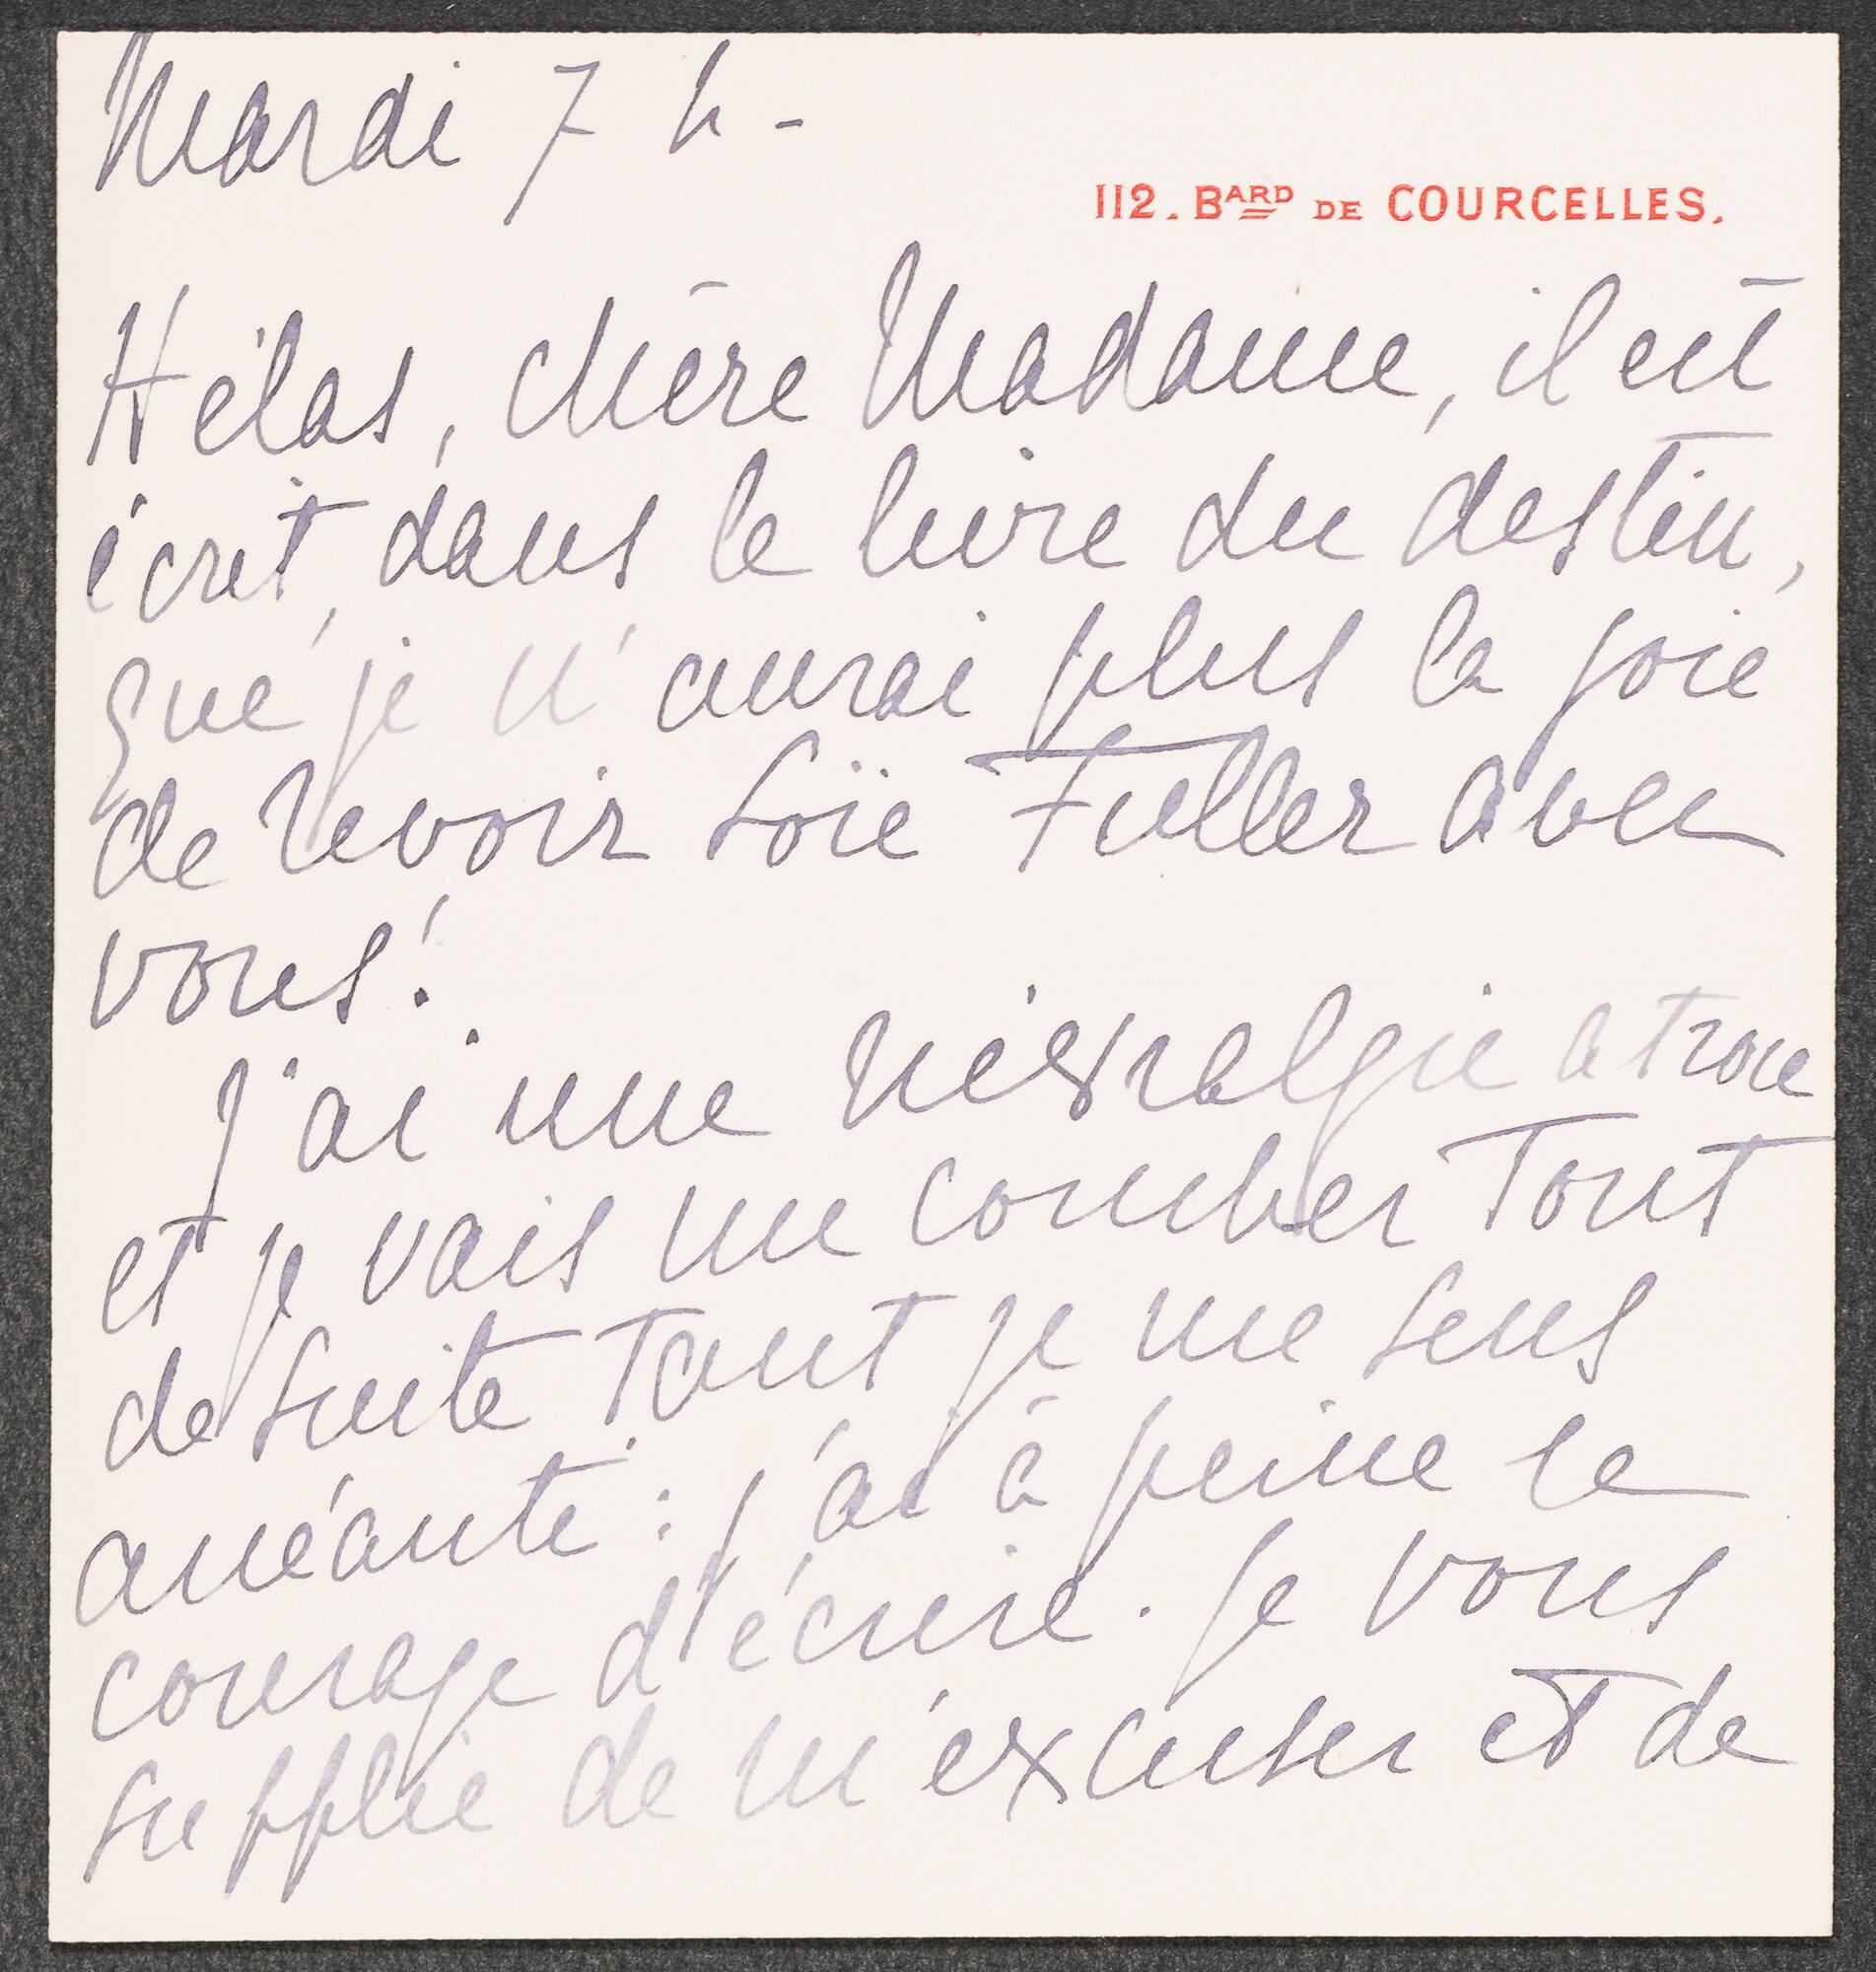 Mardi 7 h -
112. BARD DE COURCELLES.
Hélas, chère Madame, il est
écrit, dans le livre du destin,
que je n'aurai plus la joie
de revoir Loïe Fuller avec
vous!
J'ai une névralgie atroce
et je vais me coucher tout
de suite tant je me sens
anéantie : j'ai à peine le
courage d'écrire. Je vous
supplie de m'excuser et de